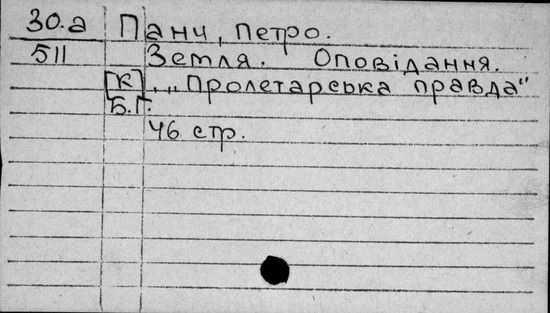 30.а Панч, Петро.
511 Земля. Оповідання.
[К] „Пролетарська правда"
Б.Г.
46 стр.